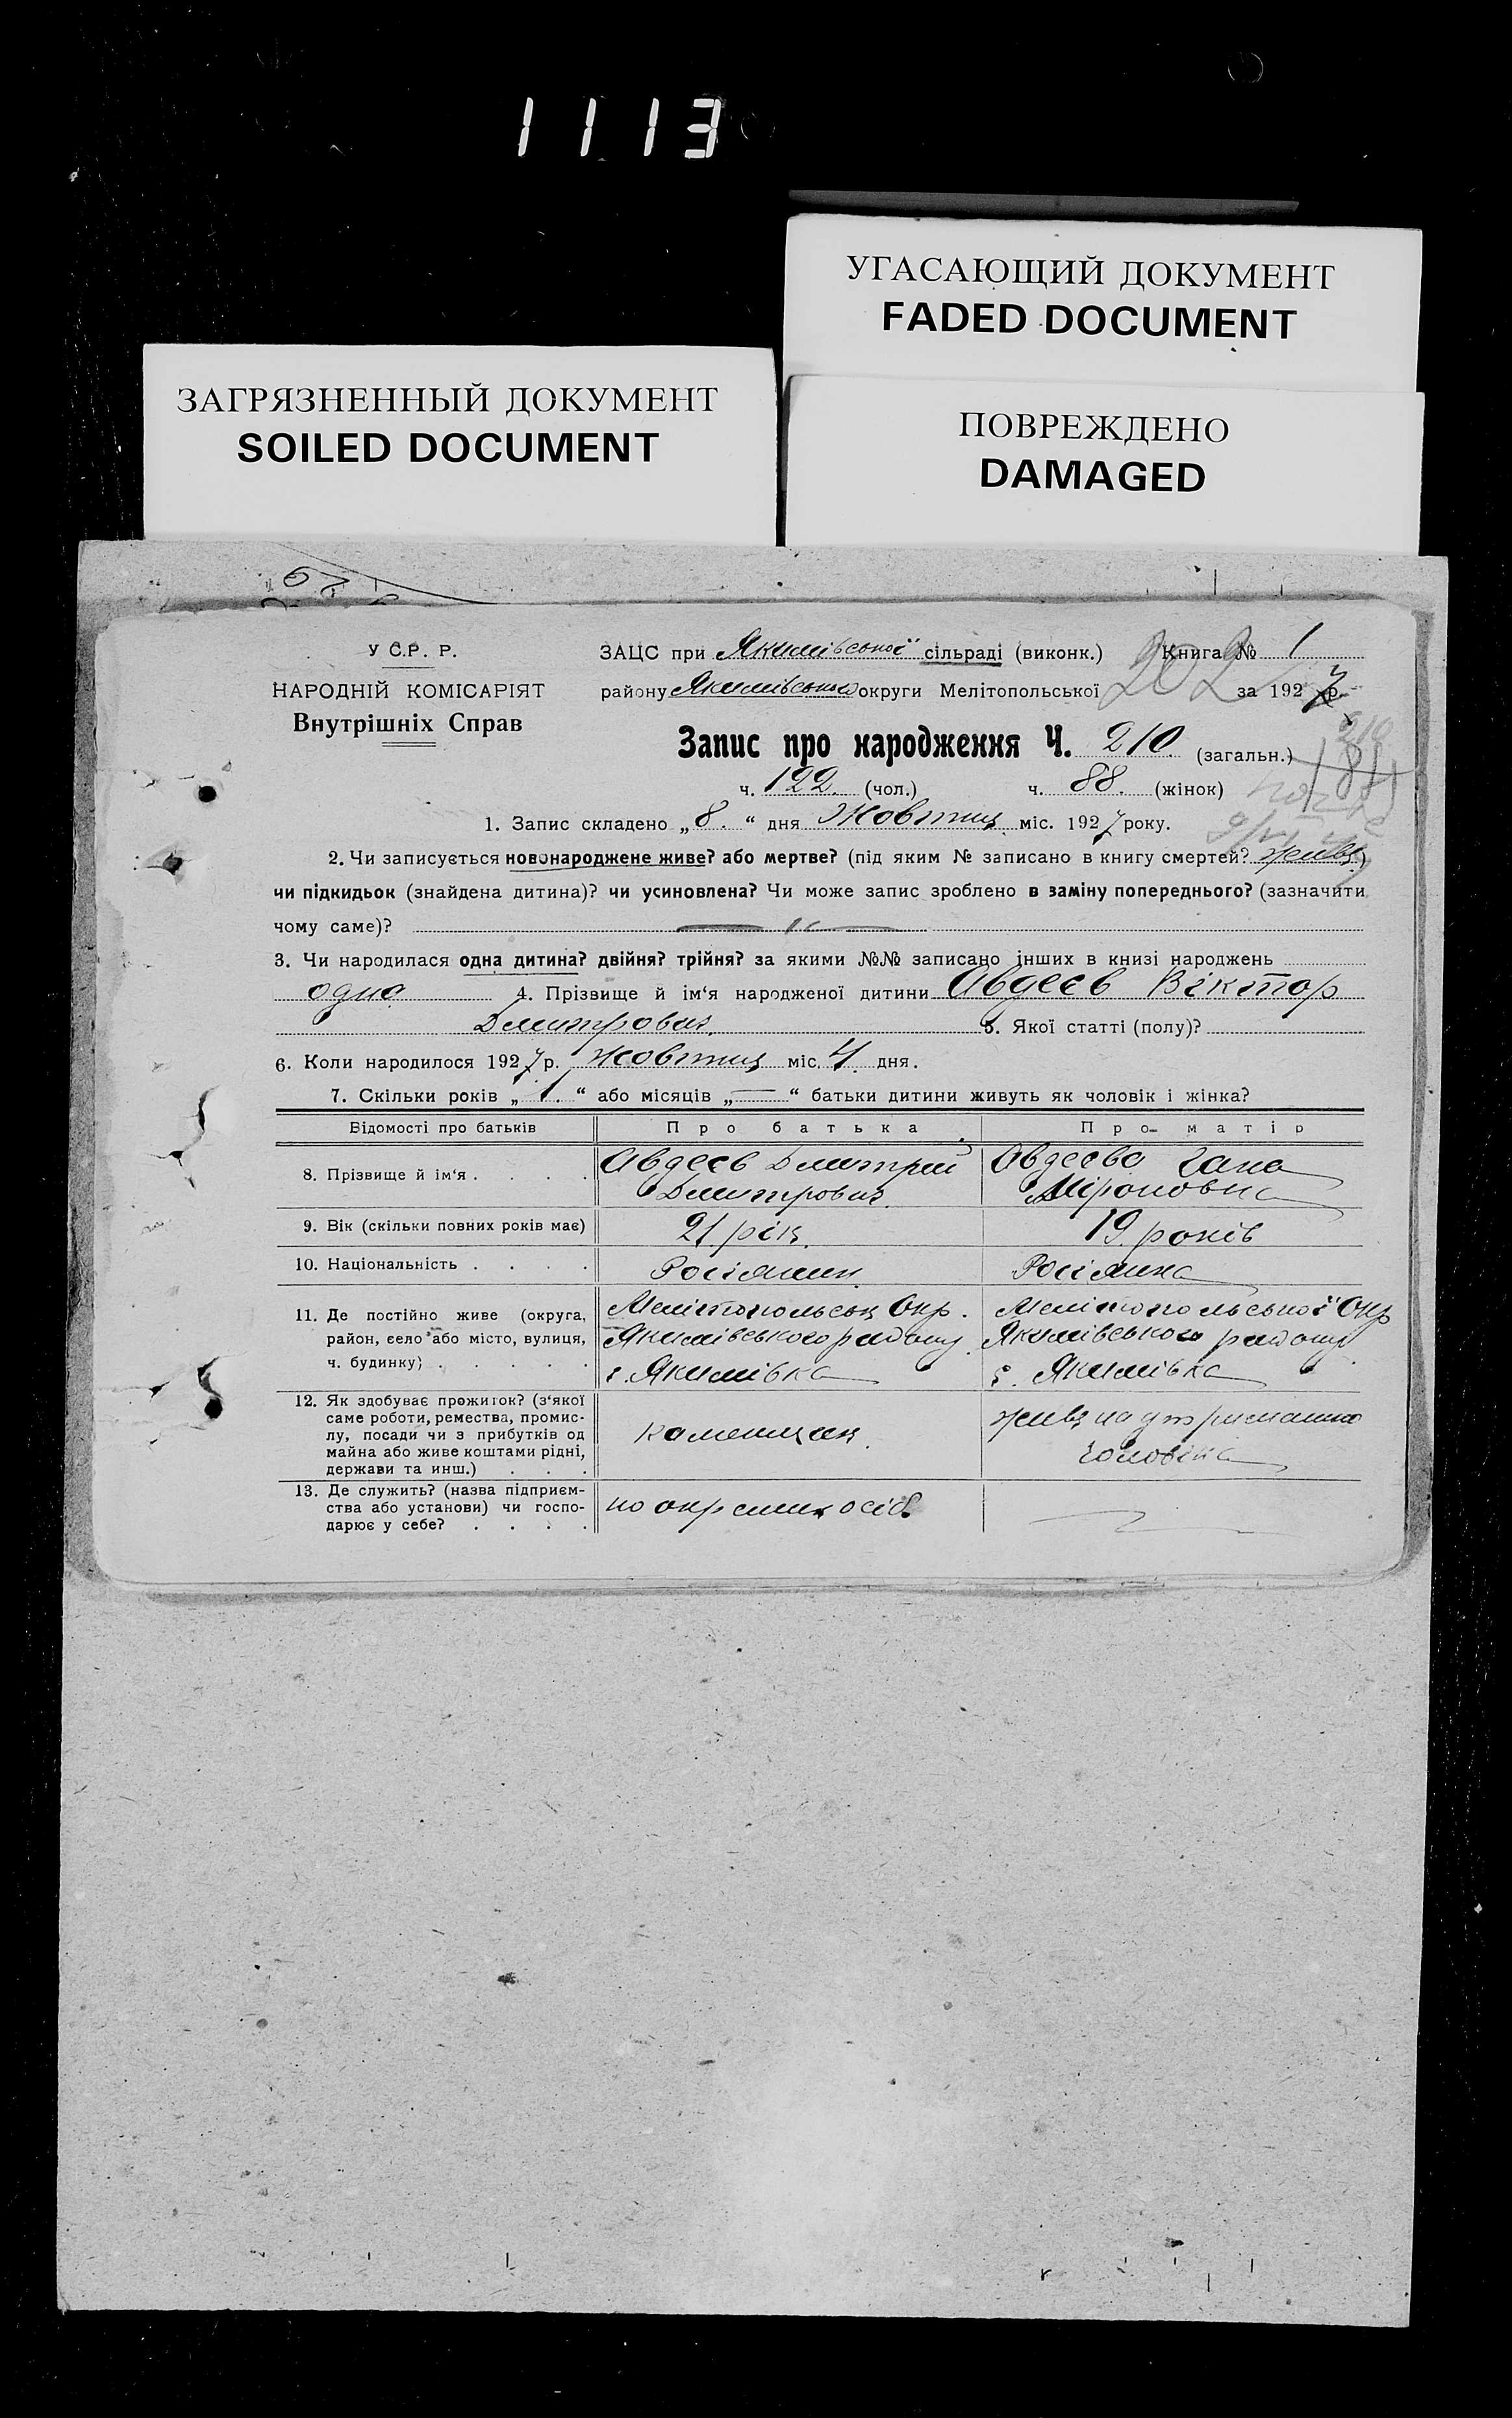 1113
УГАСАЮЩИЙ ДОКУМЕНТ
FADED DOCUMENT
ЗАГРЯЗНЕННЫЙ ДОКУМЕНТ
SOILED DOCUMENT
ПОВРЕЖДЕНО
DAMAGED
У С.Р. Р.
НАРОДНІЙ КОМІСАРІЯТ
Внутрішніх Справ
ЗАЦС при Якимівської сільраді (виконк.) Книга № 1
району Якимівського округи Мелітопольської 202 за 1927 р.
Запис про народження Ч. 210 (загальн.)
210
181
ч. 122. (чол.) ч. 88. (жінок)
1. Запис складено „8.“ дня Жовтня міс. 1927 року.
2. Чи записується новонароджене живе? або мертве? (під яким № записано в книгу смертей? живе)
чи підкидьок (знайдена дитина)? чи усиновлена? Чи може запис зроблено в заміну попереднього? (зазначити
чому саме)? — „ —
3. Чи народилася одна дитина? двійня? трійня? за якими №№ записано інших в книзі народжень
одно 4. Прізвище й ім‘я народженої дитини Авдеєв Віктор
Дмитрович 5. Якої статті (полу)?
6. Коли народилося 1927 р. Жовтня міс. 4. дня.
7. Скільки років „1.“ або місяців „—“ батьки дитини живуть як чоловік і жінка?
Відомості про батьків Про батька Про матір
8. Прізвище й ім‘я . . . . Авдеєв Дмитрий Авдеєва Гана
Дмитрович Міроновна
9. Вік (скільки повних років має) 21 рік. 19. років
10. Національність . . . . Росіянин Росіянка
11. Де постійно живе (округа, район, село або місто, вулиця, ч. будинку) . . . . .
Мелітопольськ Окр.
Якимівського району
с. Якимівка
Мелітопольської Окр
Якимівського району
с. Якимівка
12. Як здобуває прожиток? (з‘якої
саме роботи, ремества, промис-
лу, посади чи з прибутків од
майна або живе коштами рідні,
держави та инш.) . . .
каменщик
живе на утриманні
чоловіка
13. Де служить? (назва підприєм-
ства або установи) чи госпо-
дарює у себе? . . . .
по окремих осіб.